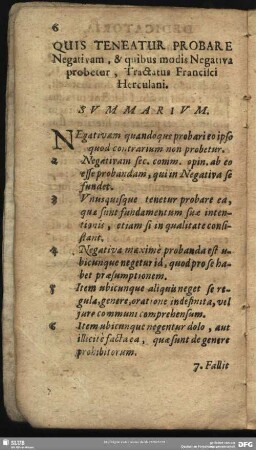 6
QUIS TENEATUR PROBARE
Negativam, & quibus modis Negativa
probetur, Tractatus Francisci
Herculani.
SVMMARIVM.
NEgativam quandoque probari eo ipso
quod contrarium non probetur.
2 Negativam sec. comm. opin. ab eo
esse probandam, qui in Negativa se
fundet.
3 Vnusquisque tenetur probare ea,
quæ sunt fundamentum suæ inten-
tionis, etiam si in qualitate consi-
stant.
4 Negativa maximè probanda est u-
bicunque negetur id, quod pro se ha-
bet præsumptionem.
5 Item ubicunque aliquis neget se re-
gula, genere, oratione indefinita, vel
jure communi comprehensum.
6 Item ubicunque negentur dolo, aut
illicitè facta ea, quæ sunt de genere
prohibitorum.
7. Fallit